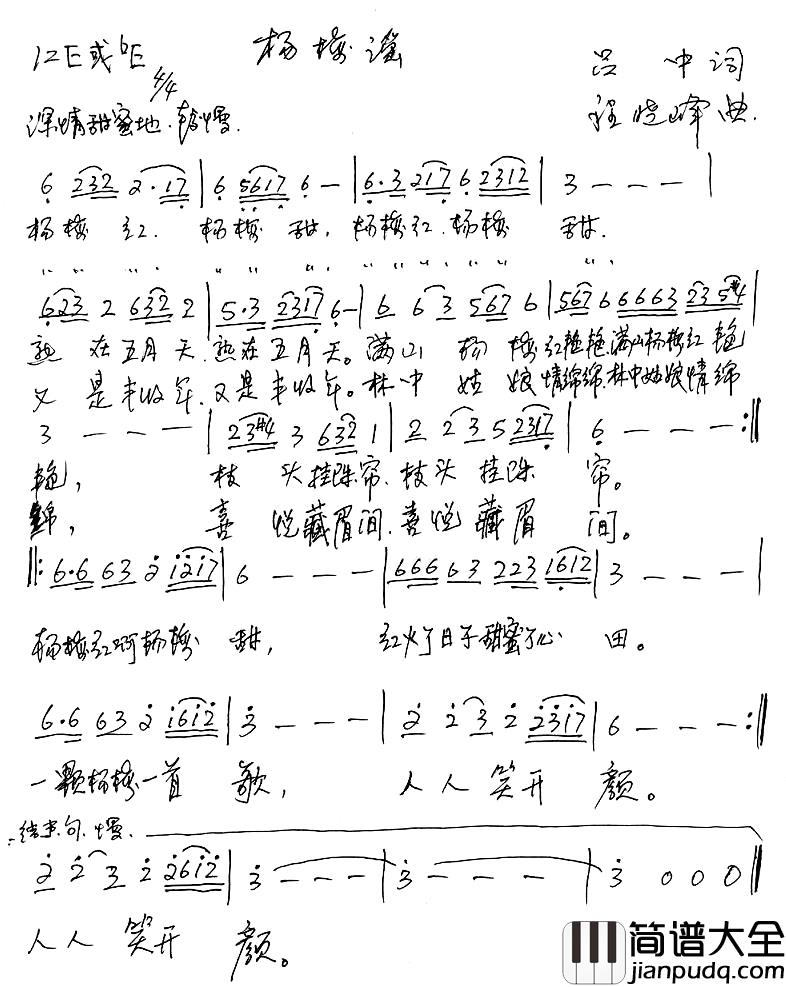 杨梅谣
1=E或bE 4/4
吕 中词
程晓峰曲.
深情甜蜜地.较慢.
6 232 2·17 | 6 5617 6 — | 6·3 217 6 2312 | 3 — — — |
杨梅 红. 杨梅 甜, 杨梅红.杨梅 甜.
623 2 632 2 | 5·3 2317 6 — | 6 6 3 567 6 | 567 6 6663 235#4 |
熟 在五月天.熟在五月天。满山 杨 梅红艳艳满山杨梅红艳
又 是丰收年.又是丰收年。林中 姑 娘情绵绵.林中姑娘情绵
3 — — — | 23#4 3 632 1 | 2 2 3 5 2317 | 6 — — — :||
艳, 枝 头挂珠帘.枝头 挂珠 帘。
绵, 喜 悦藏眉间.喜悦 藏眉 间。
||: 6·6 63 2 1217 | 6 — — — | 666 63 223 1612 | 3 — — — |
杨梅红啊杨梅 甜, 红火了日子甜蜜了心 田。
6·6 63 2 1612 | 3 — — — | 2 2 3 2 2317 | 6 — — — :||
一颗杨梅一首 歌, 人人 笑开 颜。
结束句.慢.
2 2 3 2 2612 | 3 — — — | 3 — — — | 3 0 0 0 ||
人人 笑开 颜。
简谱大全
jianpudq.com